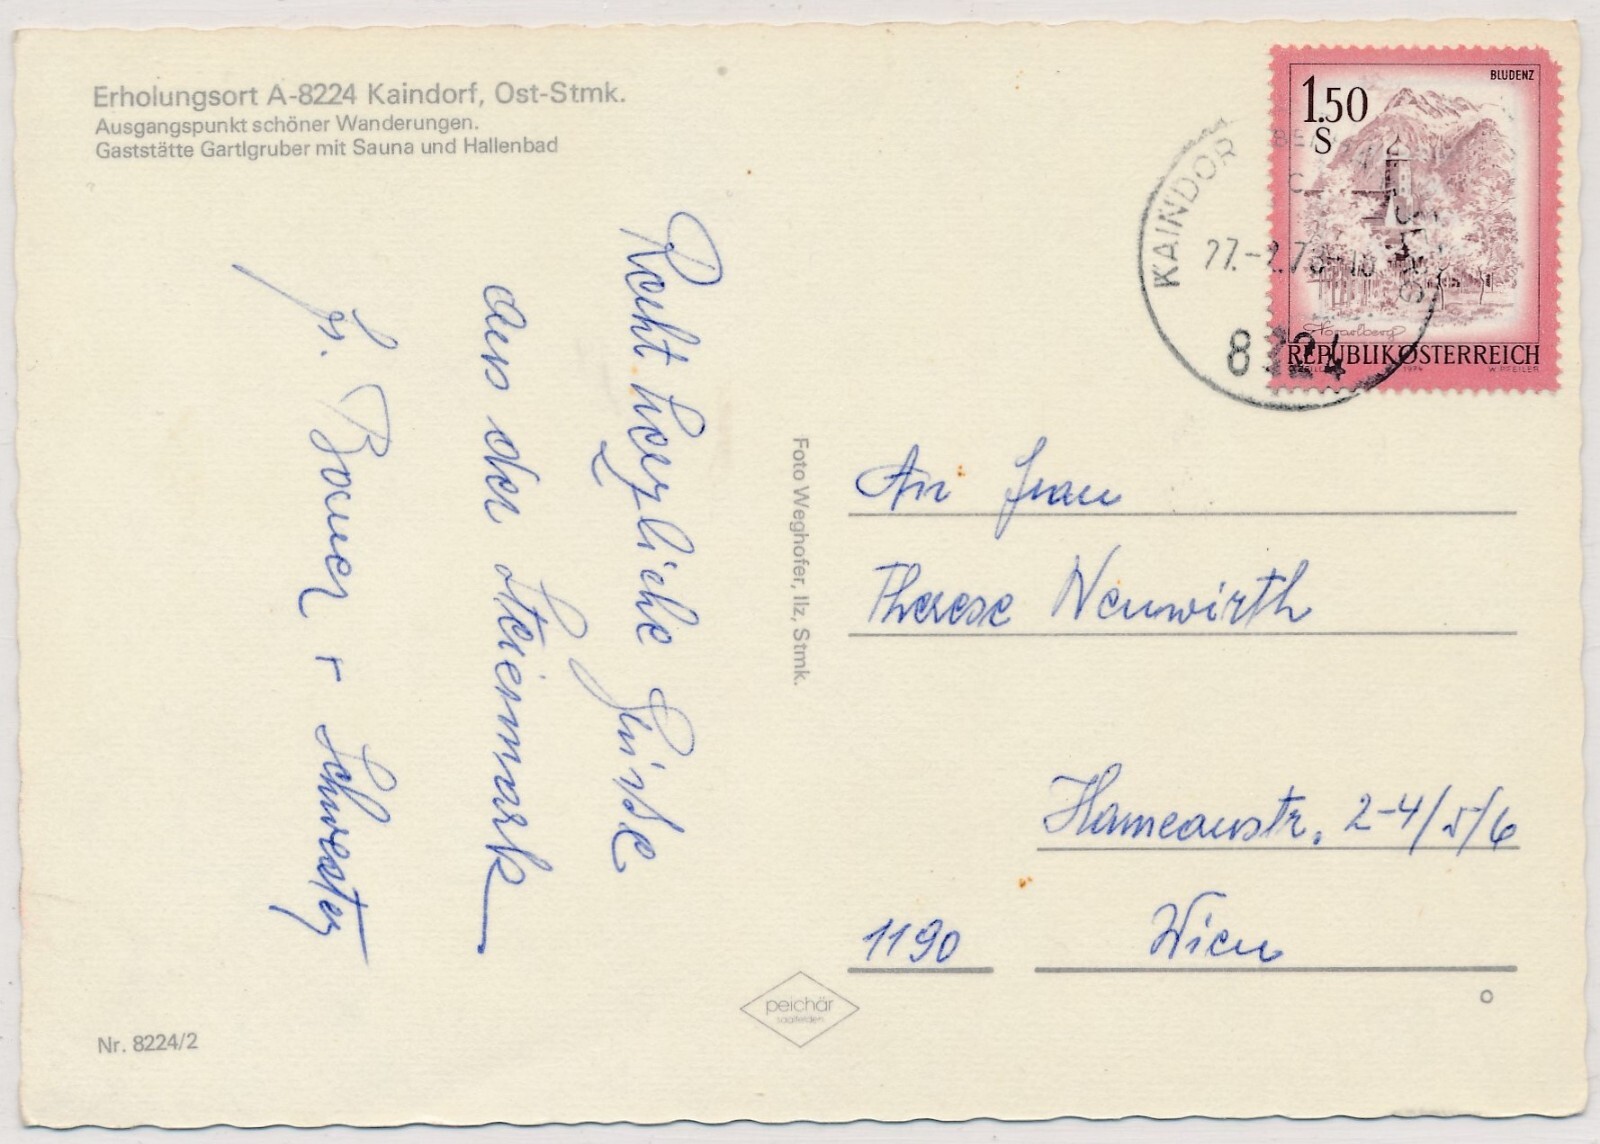 Erholungsort A-8224 Kaindorf, Ost-Stmk.
Ausgangspunkt schöner Wanderungen.
Gaststätte Gartlgruber mit Sauna und Hallenbad
Recht herzliche Grüße
aus der Steiermark
Fr. Bauer + Schwester
Foto Weghofer, Ilz, Stmk.
BLUDENZ
1.50
S
Vorarlberg
REPUBLIK ÖSTERREICH
1974 W. PFEILER
KAINDORF
8224
An Frau
Therese Neuwirth
Hameaustr. 2-4/5/6
1190 Wien
peichär
saalfelden
Nr. 8224/2